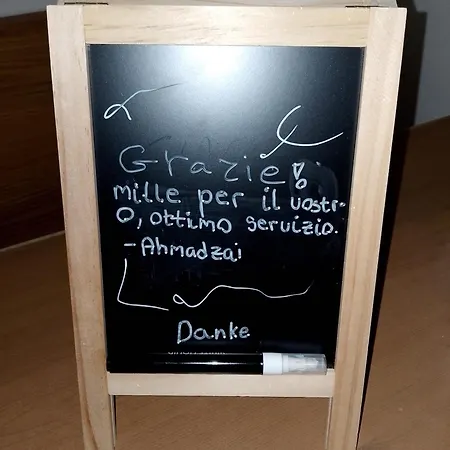 Grazie!
mille per il vostr-
o, ottimo servizio.
- Ahmadzai
Danke